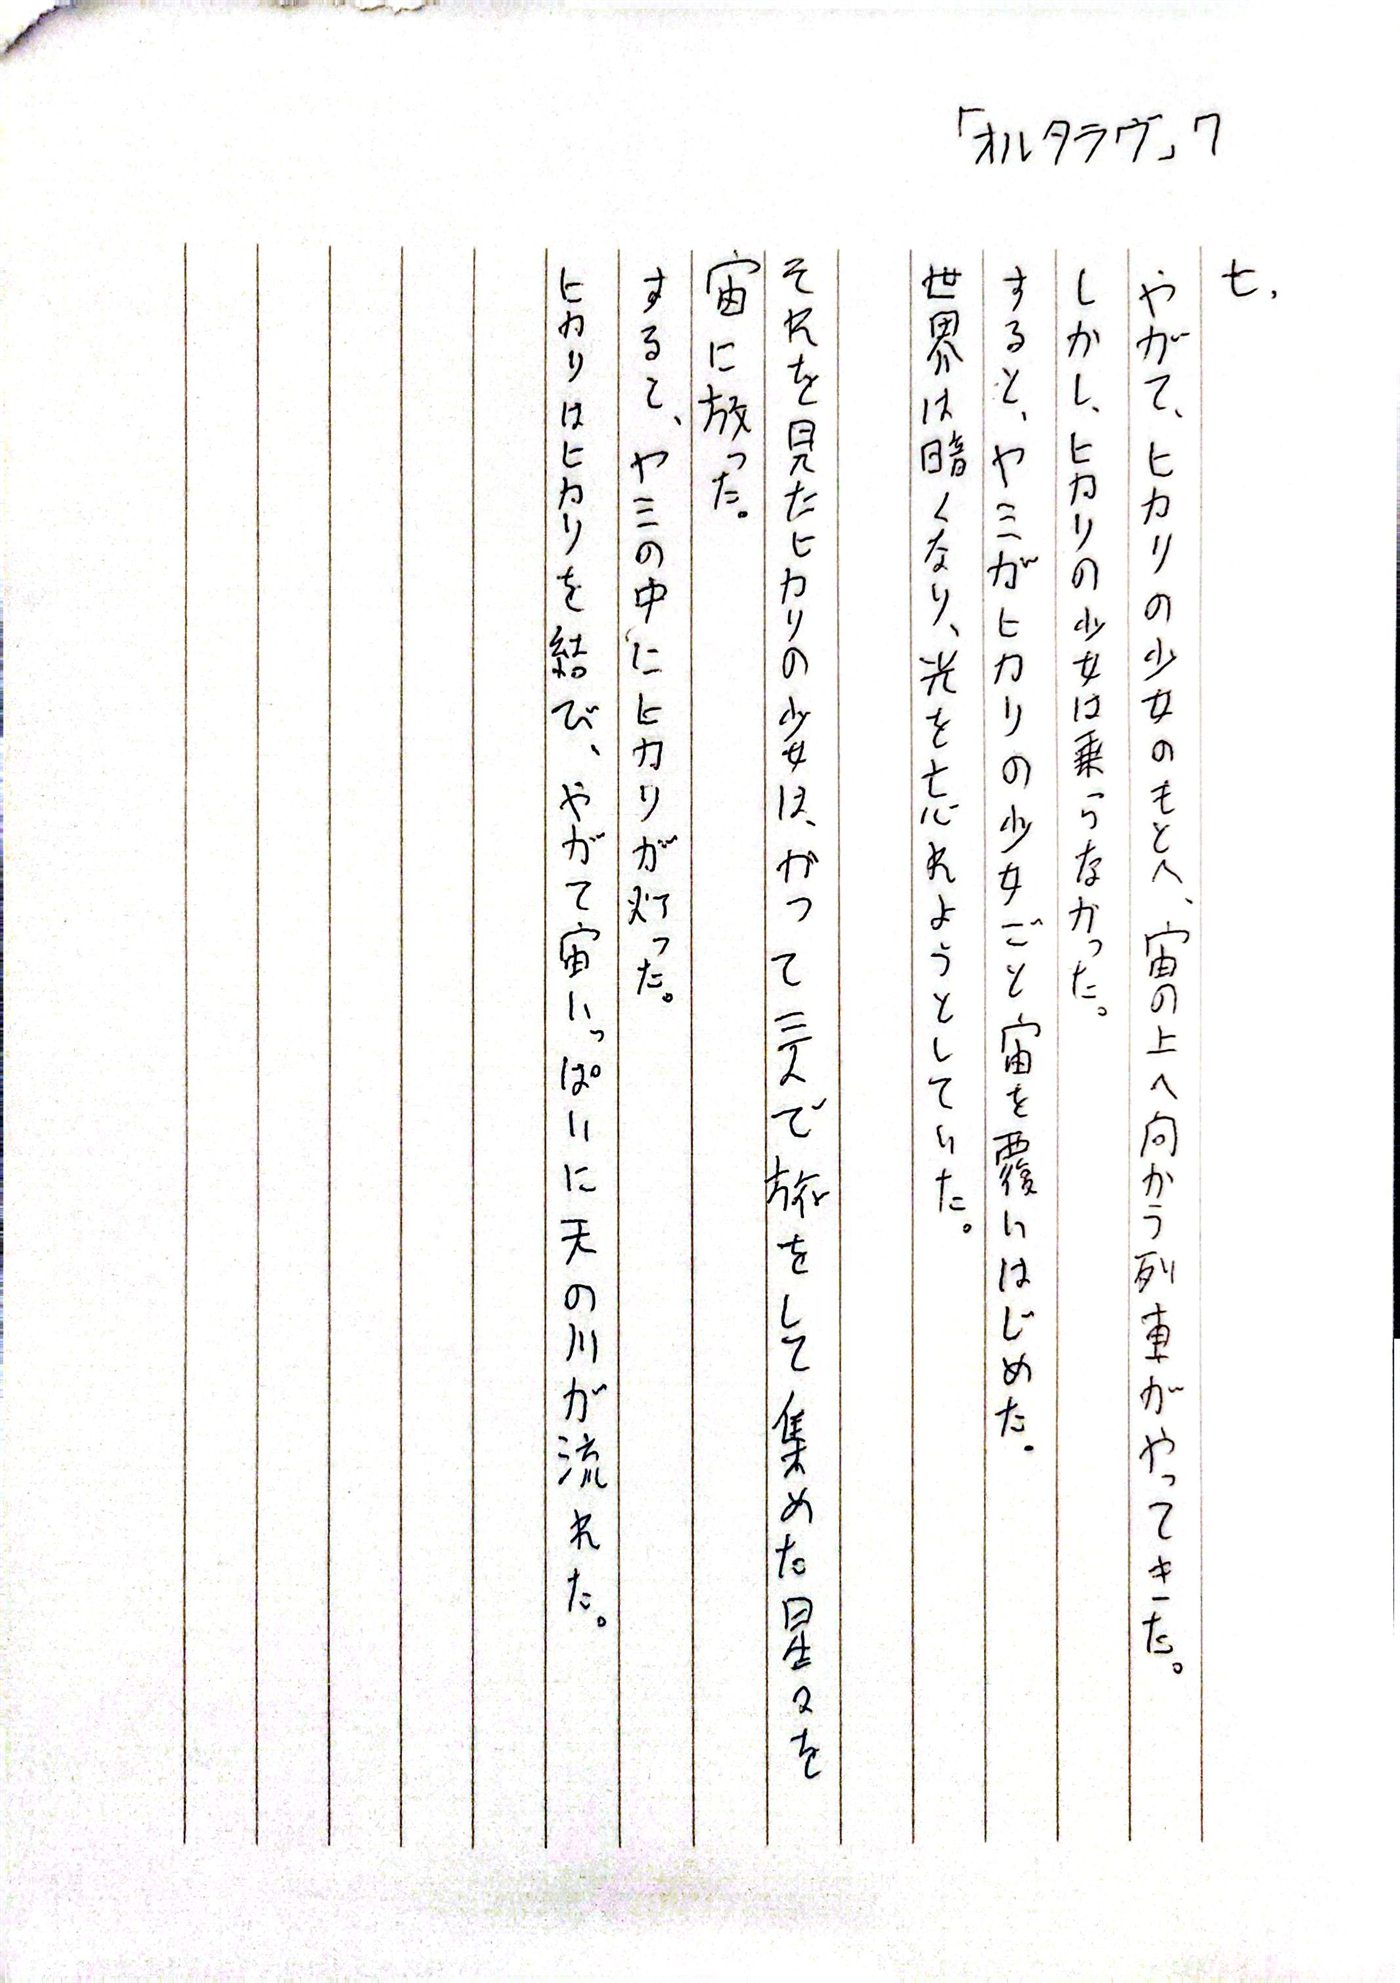 「オルタラヴ」7
七、
やがて、ヒカリの少女のもとへ、宙の上へ向かう列車がやってきた。
しかし、ヒカリの少女は乗らなかった。
すると、ヤミがヒカリの少女ごと宙を覆いはじめた。
世界は暗くなり、光を忘れようとしていた。
それを見たヒカリの少女は、かつて三人で旅をして集めた星々を
宙に放った。
すると、ヤミの中にヒカリが灯った。
ヒカリはヒカリを結び、やがて宙いっぱいに天の川が流れた。